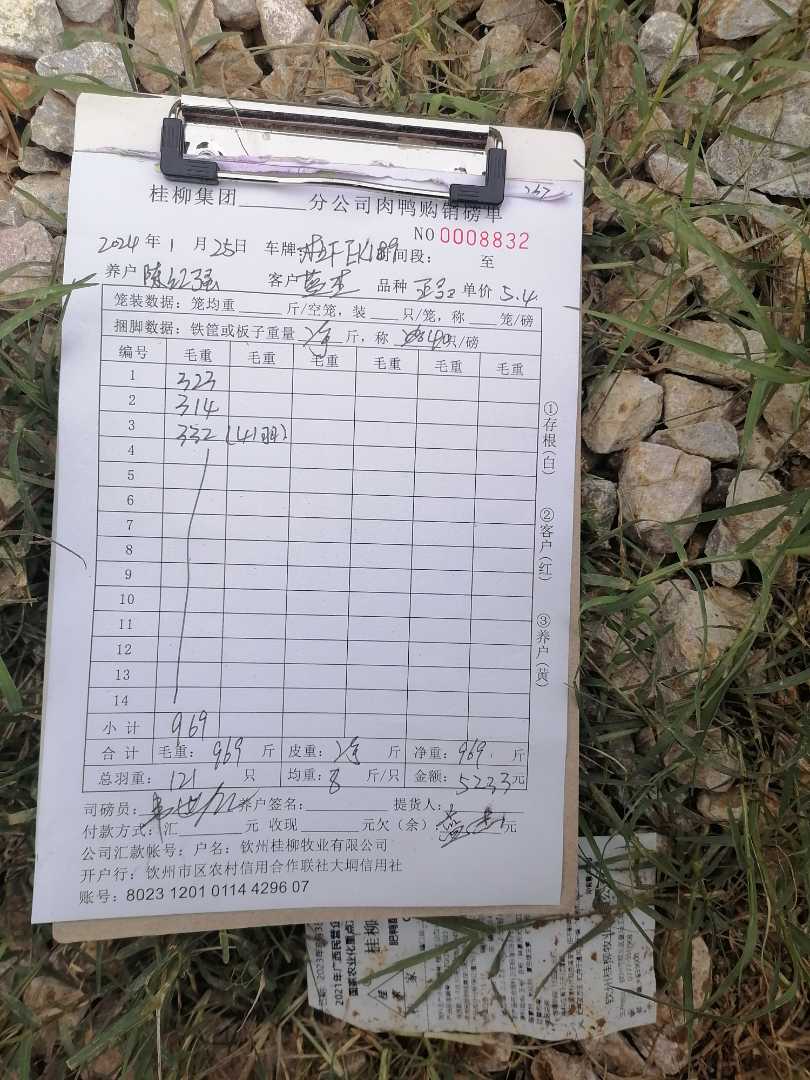 267
桂柳集团______分公司肉鸭购销磅单
NO 0008832
2024年1月25日 车牌: 时间段: 至
养户 陈红强 客户 品种 单价 5.4
笼装数据: 笼均重______斤/空笼, 装____只/笼, 称____笼/磅
捆脚数据: 铁筐或板子重量 净 斤, 称 40只/磅
编号 毛重 毛重 毛重 毛重 毛重 毛重
1 323
2 314
3 332 (41羽)
4
5
6
7
8
9
10
11
12
13
14
小计 969
合计 毛重: 969 斤 皮重: 净 斤 净重: 969. 斤
总羽重: 121 只 均重: 8 斤/只 金额: 5233元
司磅员: 养户签名:__________ 提货人:
付款方式: 汇________元 收现________元欠(余) 元
公司汇款帐号: 户名: 钦州桂柳牧业有限公司
开户行: 钦州市区农村信用合作联社大垌信用社
账号: 8023 1201 0114 4296 07
①存根(白)
②客户(红)
③养户(黄)
2021年广西民营企
国家农业化重点
桂柳
钦州桂柳牧业